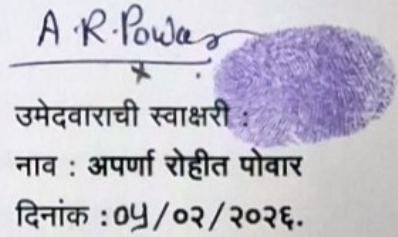 A.R.Powar
उमेदवाराची स्वाक्षरी :
नाव : अपर्णा रोहीत पोवार
दिनांक : ०५/०२/२०२६.